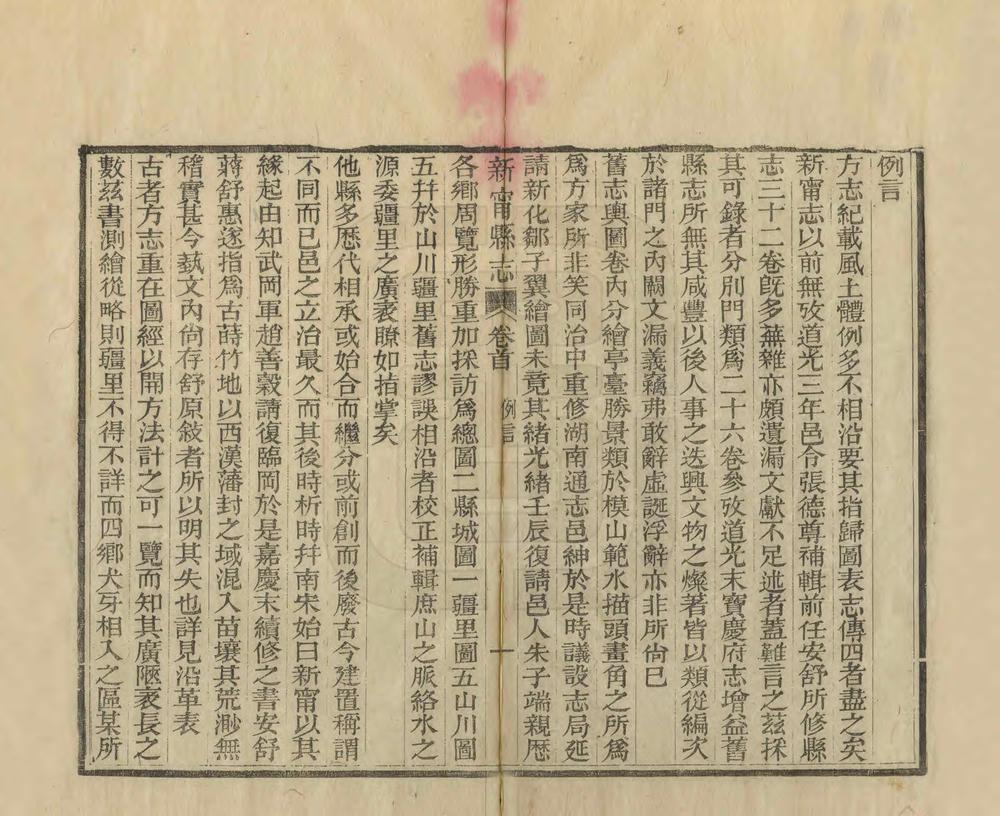 例言
方志紀載風土體例多不相沿要其指歸圖表志傳四者盡之矣
新甯志以前無攷道光三年邑令張德尊補輯前任安舒所修縣
志三十二卷旣多蕪雜亦頗遺漏文獻不足述者蓋難言之茲採
其可錄者分別門類爲二十六卷參攷道光末寶慶府志增益舊
縣志所無其咸豐以後人事之迭興文物之燦著皆以類從編次
於諸門之內闕文漏義竊弗敢辭虛誕浮辭亦非所尙已
舊志輿圖卷內分繪亭臺勝景類於模山範水描頭畫角之所爲
爲方家所非笑同治中重修湖南通志邑紳於是時議設志局延
請新化鄒子翼繪圖未竟其緒光緒壬辰復請邑人朱子端親歷
新甯縣志 卷首 例言 一
各鄉周覽形勝重加採訪爲總圖二縣城圖一疆里圖五山川圖
五幷於山川疆里舊志謬誤相沿者校正補輯庶山之脈絡水之
源委疆里之廣袤瞭如拍掌矣
他縣多歷代相承或始合而繼分或前創而後廢古今建置稱謂
不同而已邑之立治最久而其後時析時幷南宋始曰新甯以其
緣起由知武岡軍趙善穀請復臨岡於是嘉慶末續修之書安舒
蔣舒惠遂指爲古蒔竹地以西漢藩封之域混入苗壤其荒渺無
稽實甚今蓺文內尙存舒原敍者所以明其失也詳見沿革表
古者方志重在圖經以開方法計之可一覽而知其廣陿袤長之
數茲書測繪從略則疆里不得不詳而四鄉犬牙相入之區某所